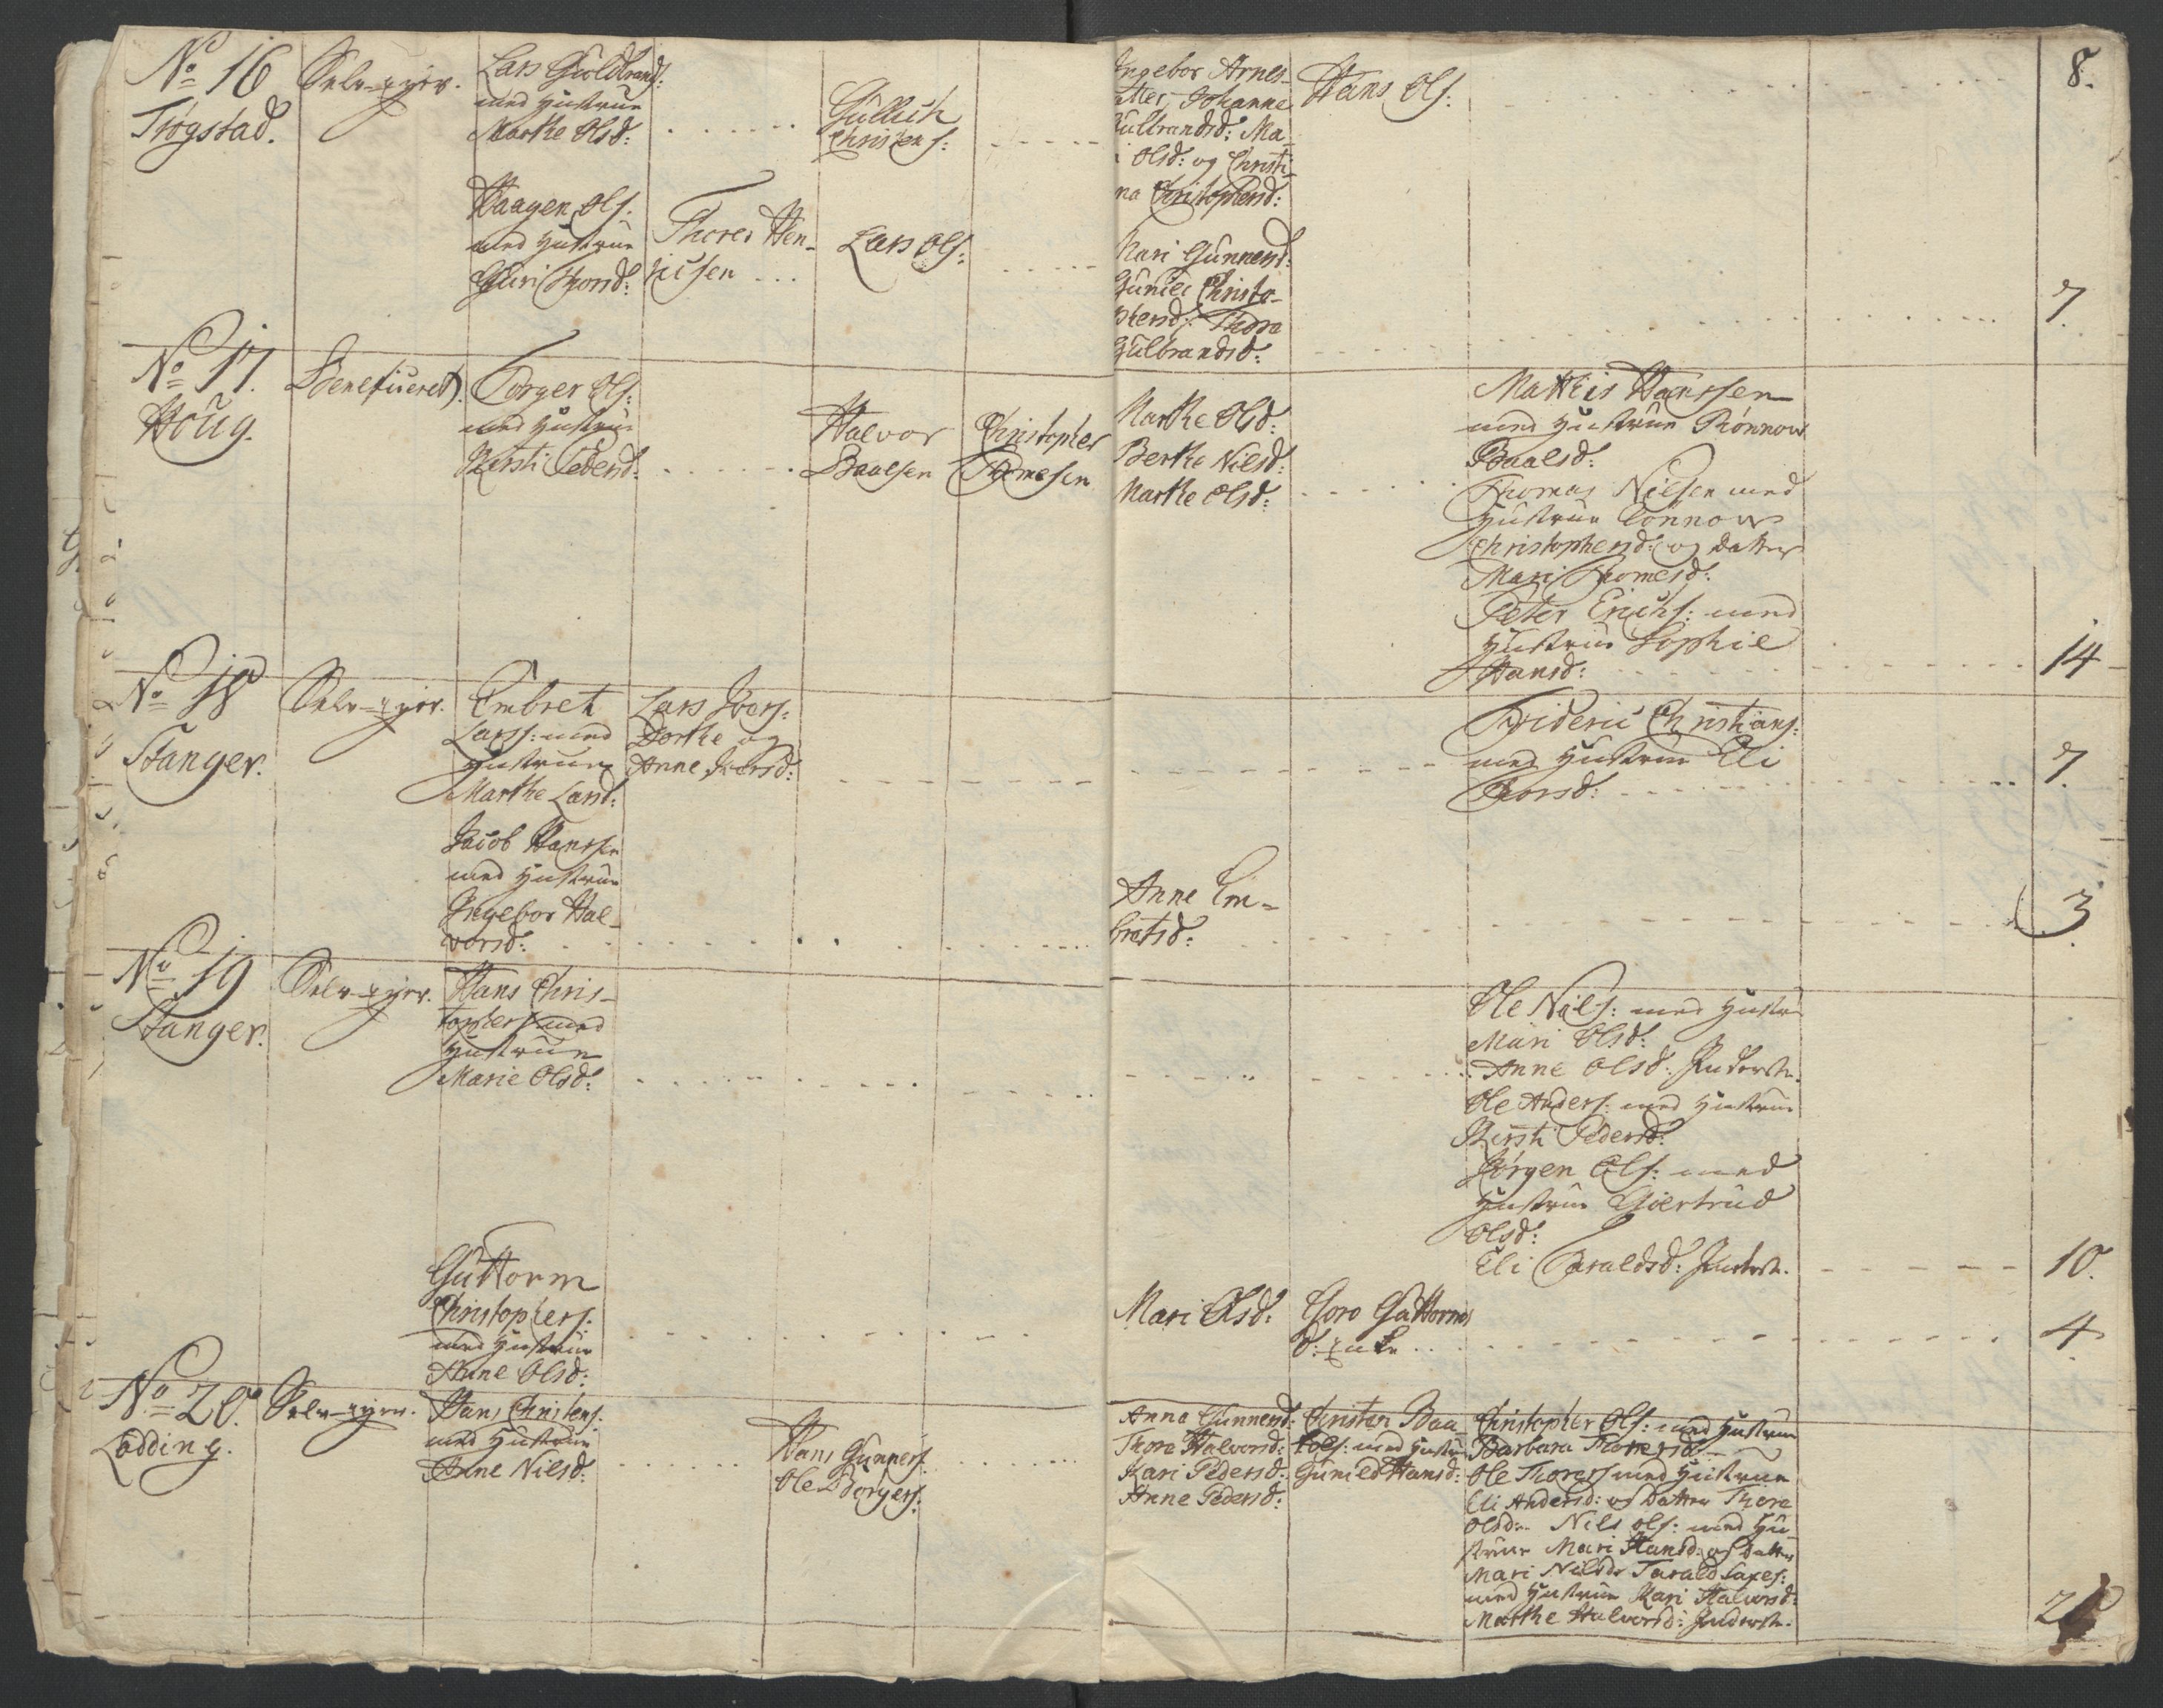 No 16
Trøgstad.
Selv-eyer.
Lars Guldbrands:
med Hustrue
Marthe Olsd:
Gullich
Christens:
Ingebor Arnes-
datter, Johanne
Gulbrandsd: Ma-
i Olsd: og Christi-
na Christophersd:
Hans Ols:
8.
Haagen Ols:
med Hustrue
Guri Thorsd:
Thores Hen-
richsen
Lars Ols:
Kari Gunnersd:
Gunild Christo-
phersd: Thora
Gulbrandsd:
7.
No 17.
Houg.
Beneficeret.
Torger Ols:
med Hustrue
Kirsti Pedersd:
Halvor
Baalsen
Christopher
Thomesen
Marthe Olsd:
Berthe Nielsd:
Marthe Olsd:
Mathis Hanssen
med Hustrue Rønnow
Baalsd:
Thomas Nielsen med
Hustrue Rønnow
Christophersd: og Datter
Mari Thomesd:
Peter Erichs: med
Hustrue Sophie
Hansd:
14
No 18
Stanger.
Selv-eyer.
Embret
Larss: med
Hustrue
Marthe Larsd:
Lars Ivers:
Dorthe og
Anne Iversd:
Frideric Christians:
med Hustrue Eli
Thorsd:
7.
Jacob Hanssen
med Hustrue
Ingebor Hal-
vorsd:
Anne Em-
bretsd:
3
No 19
Stanger.
Selv-eyer.
Hans Chris-
tophers: med
Hustrue
Marie Olsd:
Ole Niels: med Hustrue
Mari Olsd:
Anne Olsd: Inderste.
Ole Anders: med Hustrue
Kirsti Pedersd:
Jørgen Ols: med
Hustrue Giertrud
Olsd:
Eli Taraldsd: Inderste.
10.
Guttorm
Christophers:
med Hustrue
Anne Olsd:
Mari Olsd:
Goro Guttorms
d: Enke
4
No 20.
Lødding.
Selv-eyer.
Hans Christens:
med Hustrue
Anne Nielsd:
Hans Gunners:
Ole Børgers:
Anne Gunnersd:
Thora Halvorsd:
Kari Pedersd:
Anne Pedersd:
Christen Baa-
rdls: med Hustrue
Gunild Hansd:
Christopher Ols: med Hustrue
Barbara Thoresd:
Ole Thorers: med Hustrue
Eli Andersd: og Datter Thore
Olsd: Nils Ols: med Hu-
strue Mari Hansd: og Datter
Mari Nilsd: Tarald Saxes:
med Hustrue Kari Halvorsd:
Marthe Halvorsd: Inderste.
2